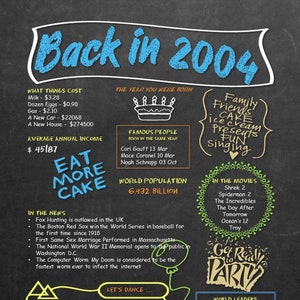 Back in 2004
WHAT THINGS COST
Milk - $3.28
Dozen Eggs - $0.98
Gas - $2.10
A New Car - $22068
A New House - $274500
AVERAGE ANNUAL INCOME
$ 45187
EAT
MORE
CAKE
THE YEAR YOU WERE BORN
FAMOUS PEOPLE
BORN IN THE SAME YEAR
Cori Gauff 13 Mar
Mace Coronel 10 Mar
Noah Schnapp 03 Oct
WORLD POPULATION
6.432 BILLION
Family
Friends
CAKE
ice cream
Presents
Fun
Singing
IN THE MOVIES
Shrek 2
Spiderman 2
The Incredibles
The Day After
Tomorrow
Ocean's 12
Troy
IN THE NEWS
Fox Hunting is outlawed in the UK
The Boston Red Sox win the World Series in baseball for
the first time since 1918
First Same Sex Marriage Performed in Massachusetts
The National World War II Memorial opens to the public in
Washington D.C.
The Computer Worm My Doom is considered to be the
fastest worm ever to infect the internet
Get Ready
to
PARTY
LET'S DANCE
WORLD LEADERS